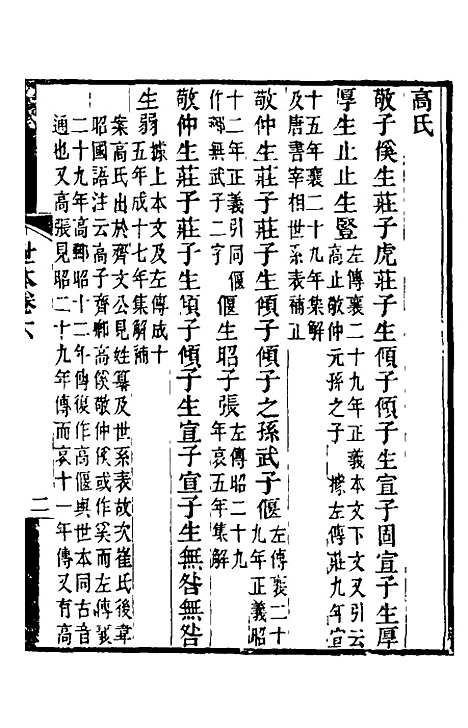 高氏
敬子傒生莊子虎莊子生傾子傾子生宣子固宣子生厚
厚生止止生豎左傳襄二十九年正義本文下文又引云
高止敬仲元孫之子 據左傳莊九年宣
十五年襄二十九年集解
及唐書宰相世系表補正
敬仲生莊子莊子生傾子傾子之孫武子偃左傳襄二十
九年正義昭
十二年正義引同偃
作酀無武子二字
偃生昭子張左傳昭二十九
年哀五年集解
敬仲生莊子莊子生頃子傾子生宣子宣子生無咎無咎
生弱據上本文及左傳成十
五年成十七年集解補
案高氏出於齊文公見姓纂及世系表故次崔氏後韋
昭國語注云高子齊卿高傒敬仲傒或作奚而左傳襄
二十九年高酀昭十二年傳復作高偃與世本同古音
通也又高張見昭二十九年傳而哀十一年傳又有高
世本卷六
二